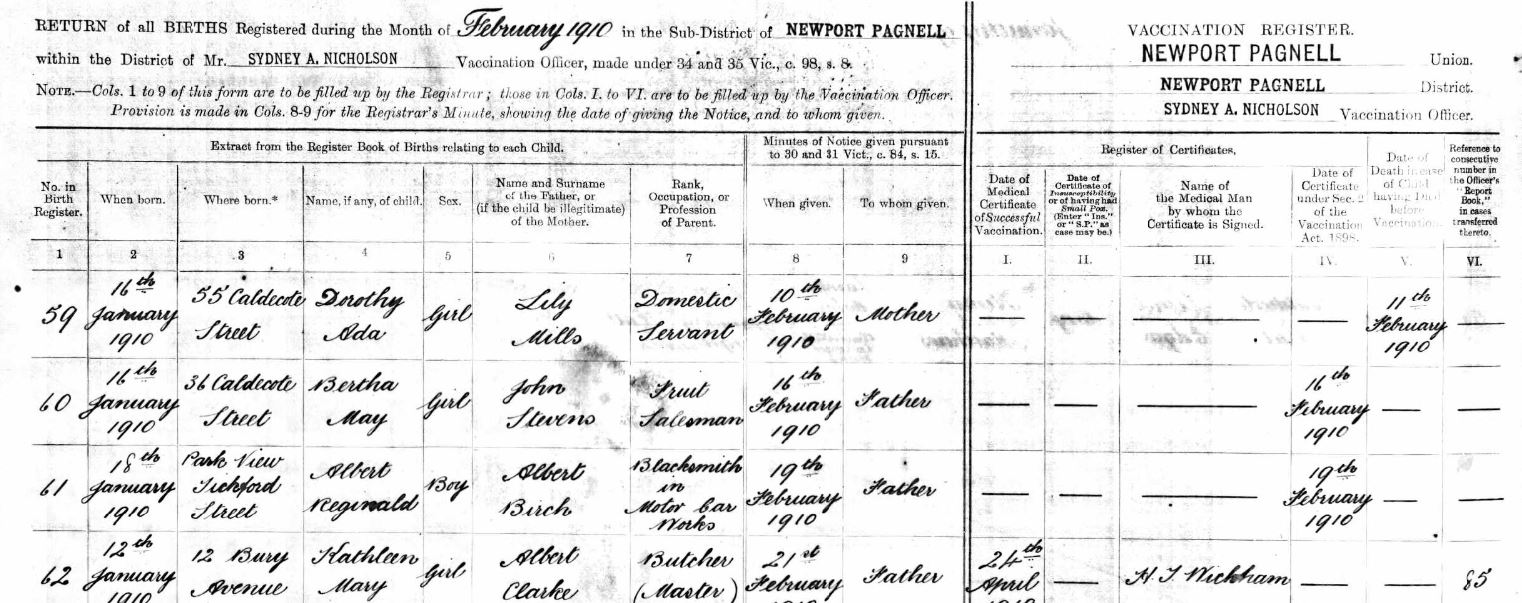 RETURN of all BIRTHS Registered during the Month of February 1910 in the Sub-District of NEWPORT PAGNELL
within the District of Mr. SYDNEY A. NICHOLSON Vaccination Officer, made under 34 and 35 Vic., c. 98, s. 8.
NOTE.—Cols. 1 to 9 of this form are to be filled up by the Registrar; those in Cols. I. to VI. are to be filled up by the Vaccination Officer.
Provision is made in Cols. 8-9 for the Registrar's Minute, showing the date of giving the Notice, and to whom given.
VACCINATION REGISTER.
NEWPORT PAGNELL Union.
NEWPORT PAGNELL District.
SYDNEY A. NICHOLSON Vaccination Officer.
Extract from the Register Book of Births relating to each Child.
Minutes of Notice given pursuant
to 30 and 31 Vict., c. 84, s. 15.
Register of Certificates.
No. in
Birth
Register.
When born.
Where born.*
Name, if any, of child.
Sex.
Name and Surname
of the Father, or
(if the child be illegitimate)
of the Mother.
Rank,
Occupation, or
Profession
of Parent.
When given.
To whom given.
Date of
Medical
Certificate
of Successful
Vaccination.
Date of
Certificate of
Insusceptibility
or of having had
Small Pox.
(Enter "Ins."
or "S.P." as
case may be.)
Name of
the Medical Man
by whom the
Certificate is Signed.
Date of
Certificate
under Sec. 2
of the
Vaccination
Act, 1898.
Date of
Death in case
of Child
having Died
before
Vaccination.
Reference to
consecutive
number in
the Officer's
"Report
Book,"
in cases
transferred
thereto.
1 2 3 4 5 6 7 8 9 I. II. III. IV. V. VI.
59
16th
January
1910
55 Caldecote
Street
Dorothy
Ada
Girl
Lily
Mills
Domestic
Servant
10th
February
1910
Mother
— — — —
11th
February
1910
—
60
16th
January
1910
36 Caldecote
Street
Bertha
May
Girl
John
Stevens
Fruit
Salesman
16th
February
1910
Father
— — —
16th
February
1910
— —
61
18th
January
1910
Park View
Tickford
Street
Albert
Reginald
Boy
Albert
Birch
Blacksmith
in
Motor Car
Works
19th
February
1910
Father
— — —
19th
February
1910
— —
62
12th
January
1910
12 Bury
Avenue
Kathleen
Mary
Girl
Albert
Clarke
Butcher
(Master)
21st
February
1910
Father
24th
April
1910
—
H. J. Wickham
— —
85